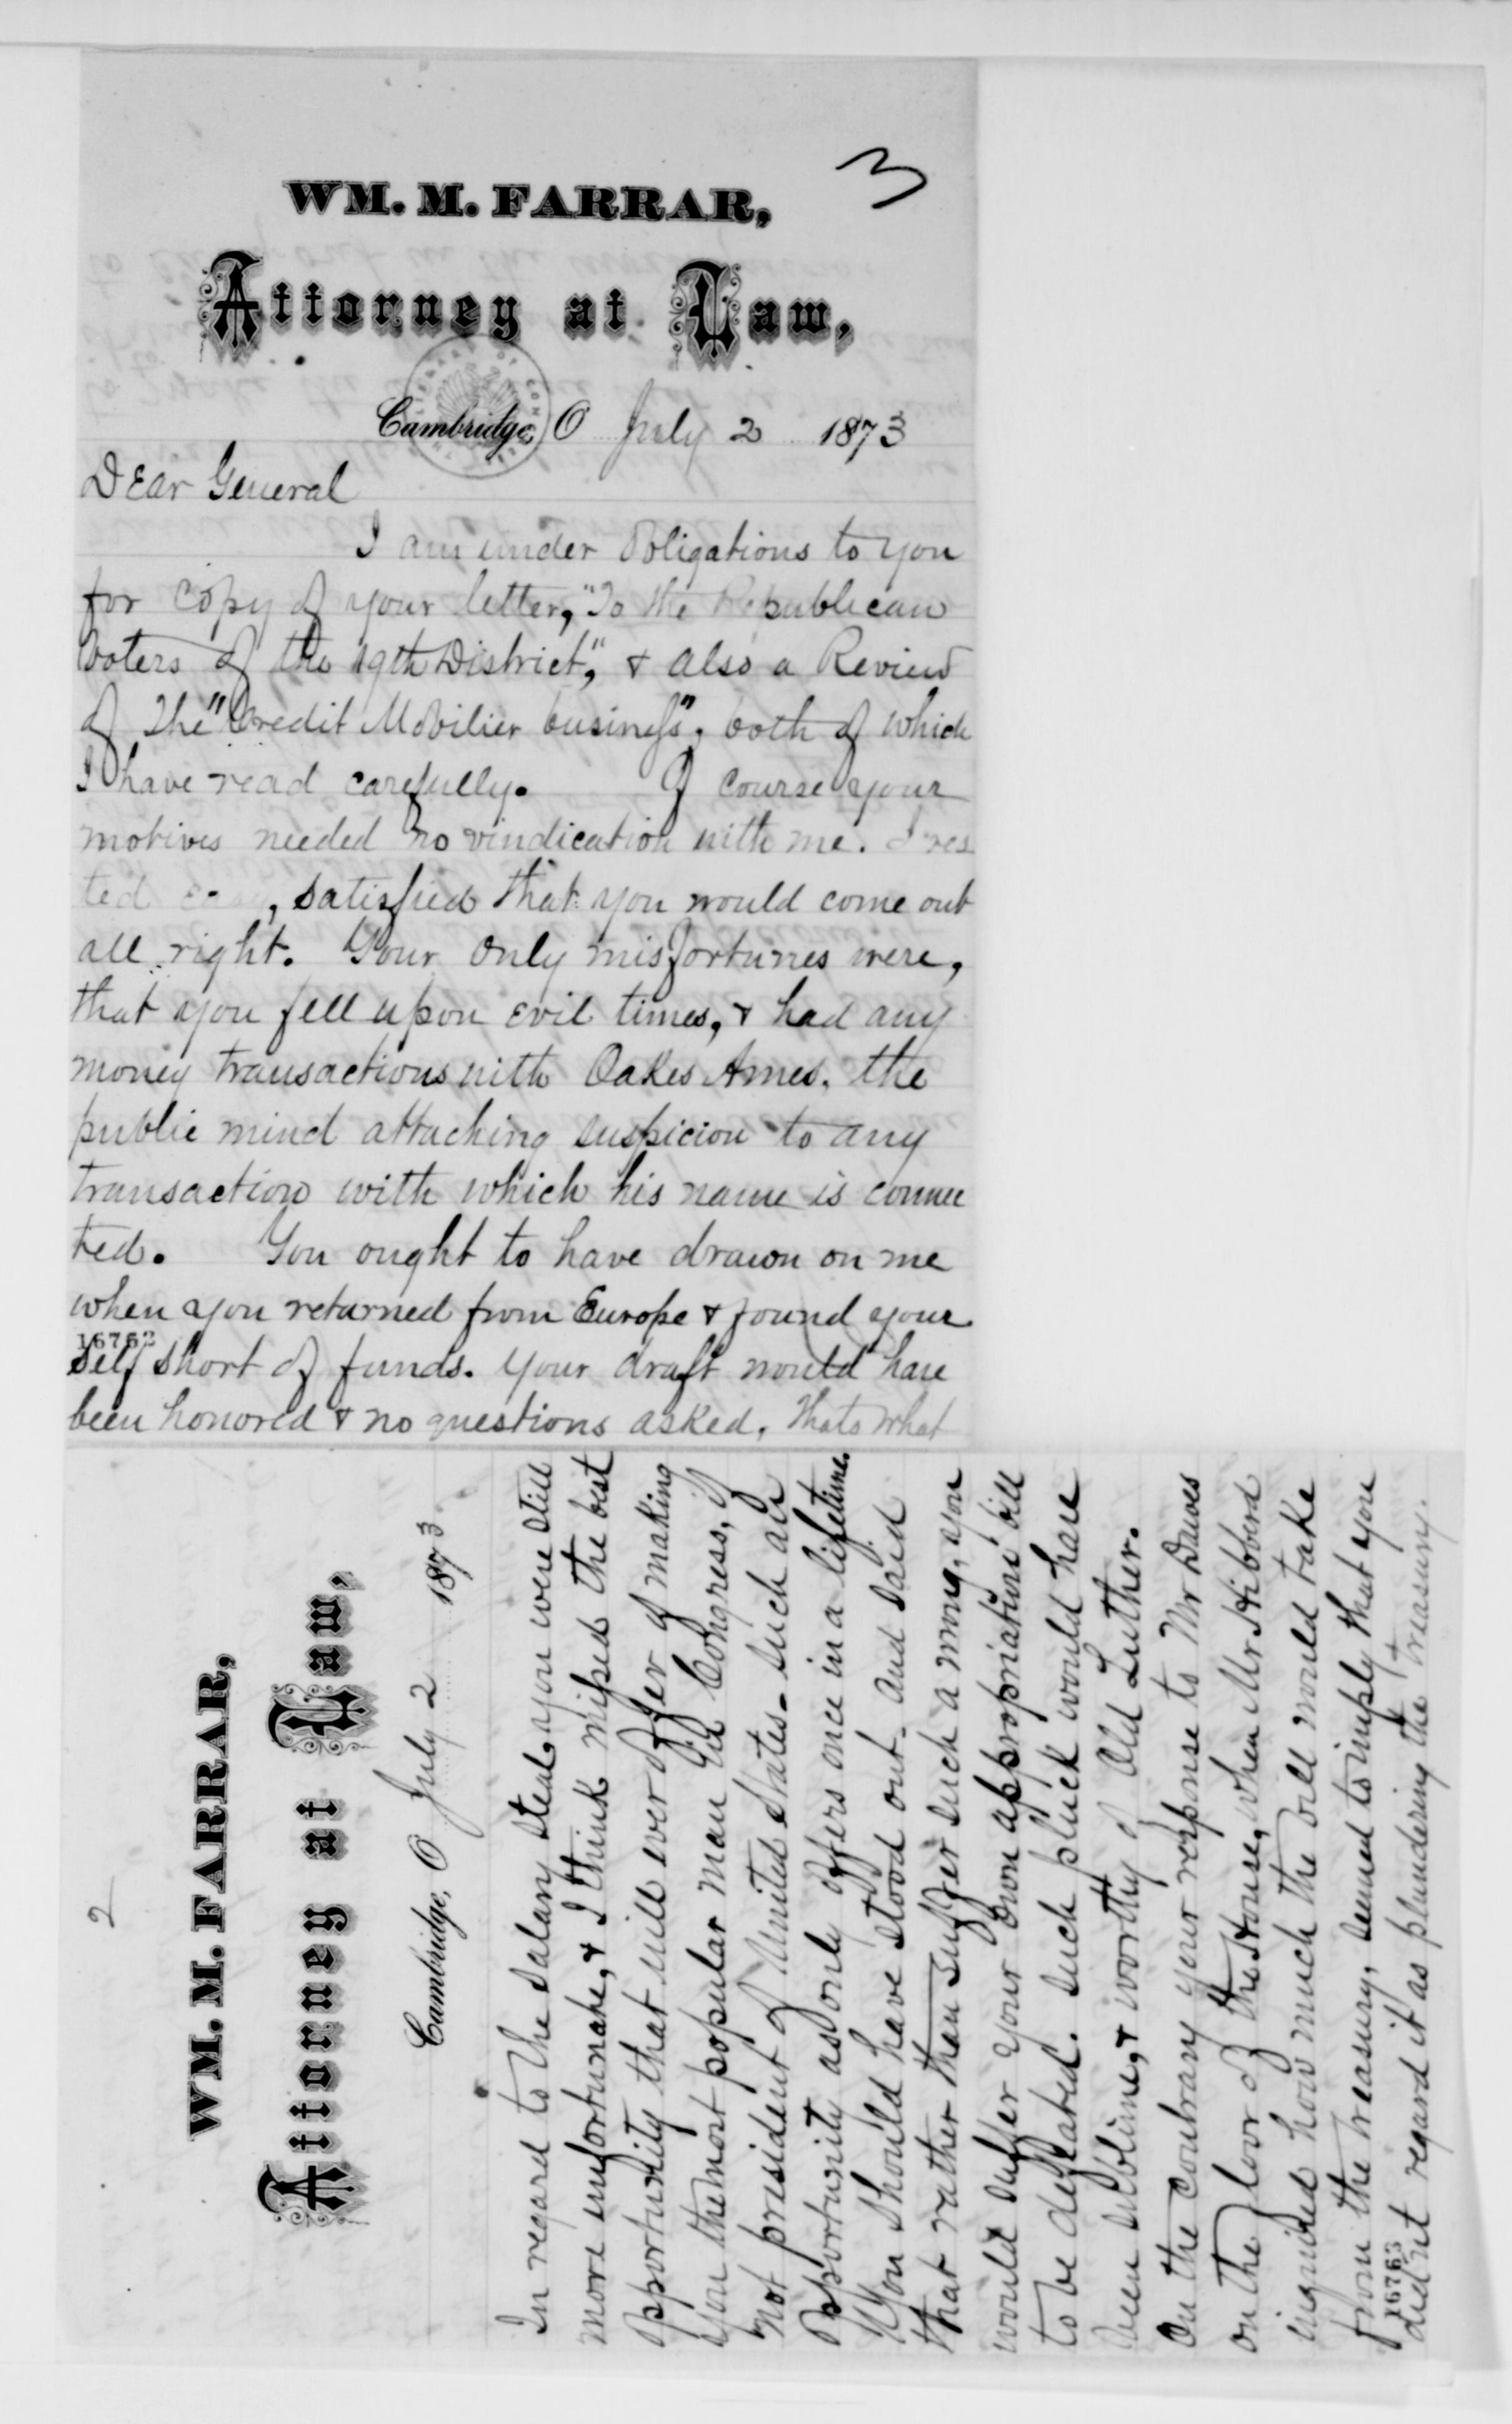 3
WM. M. FARRAR,
Attorney at Law,
Cambridge, O July 2 1873
Dear General
I am under obligations to you
for copy of your letter, "To the Republican
voters of the 19th District", & also a Review
of The "Credit Mobilier business", both of which
I have read carefully. Of course your
motives needed no vindication with me. I res
ted easy, satisfied that you would come out
all right. Your only misfortunes were,
that you fell upon evil times, & had any
money transactions with Oakes Ames. the
public mind attaching suspicion to any
transaction with which his name is connec
ted. You ought to have drawn on me
when you returned from Europe & found your
16762
self short of funds. your draft would have
been honored & no questions asked. Thats what
2
WM. M. FARRAR,
Attorney at Law,
Cambridge, O July 2 1873
In regard to the salary steal, you were still
more unfortunate, & I think missed the best
opportunity that will ever offer of making
you the most popular man in Congress, if
not president of United States. Such an
opportunity as only offers once in a lifetime.
You should have stood out and said
that rather than suffer such a wrong, you
would suffer your own appropriation bill
to be defeated. Such pluck would have
been sublime, & worthy of Old Luther.
On the contrary your response to Mr Dawes
on the floor of the House, when Mr Hibberd
inquired how much the bill would take
from the treasury, seemed to imply that you
16763
did not regard it as plundering the treasury.